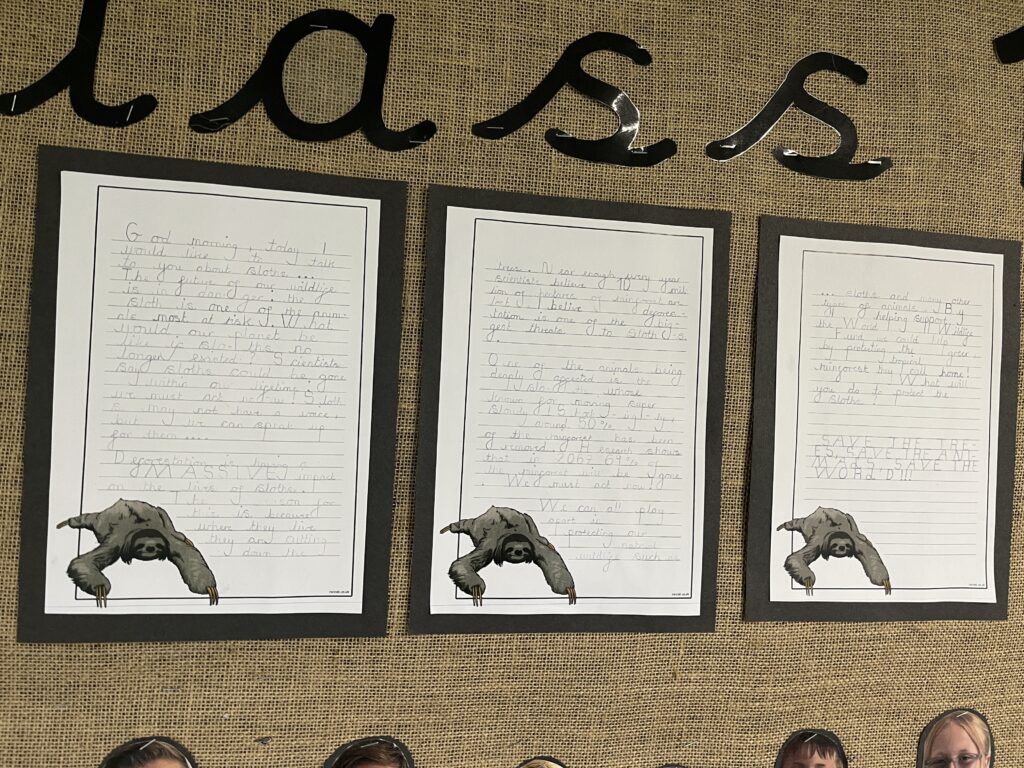 lass
Good morning, today I
would like to talk
to you about sloths ...
The future of our wildlife
is in danger. the
sloth is one of the anim-
als most at risk. What
would our planet be
like if sloths no
longer existed? Scientists
say sloths could be gone
within our lifetime!
we must act now! Sloth
s may not have a voice,
but we can speak up
for them ....
Deforestation is having a
MASSIVE impact
on the lives of sloths.
The reason for
this is because
where they live
they are cutting
down the
trees. Near enough every year
scientists believe 10 mil
lion of hectares of rainforest are
lost. I believe defores-
tation is one of the big-
gest threats to sloths.
One of the animals being
deeply affected is the
sloth whose
known for moving super
slowly!
Around 50% of
of the rainforest has been
removed. Research shows
that in 2067 69% of
the rainforest will be gone
. We must act now!
We can all play
a part in
protecting our
wildlife such as
... sloths and many other
types of animals. By
helping support
the World Wildlife
Fund we could help
by protecting the
tropical
rainforest they call home!
What will
you do to protect the
sloths?
SAVE THE TRE-
ES, SAVE THE
SAVE THE
WORLD!!!